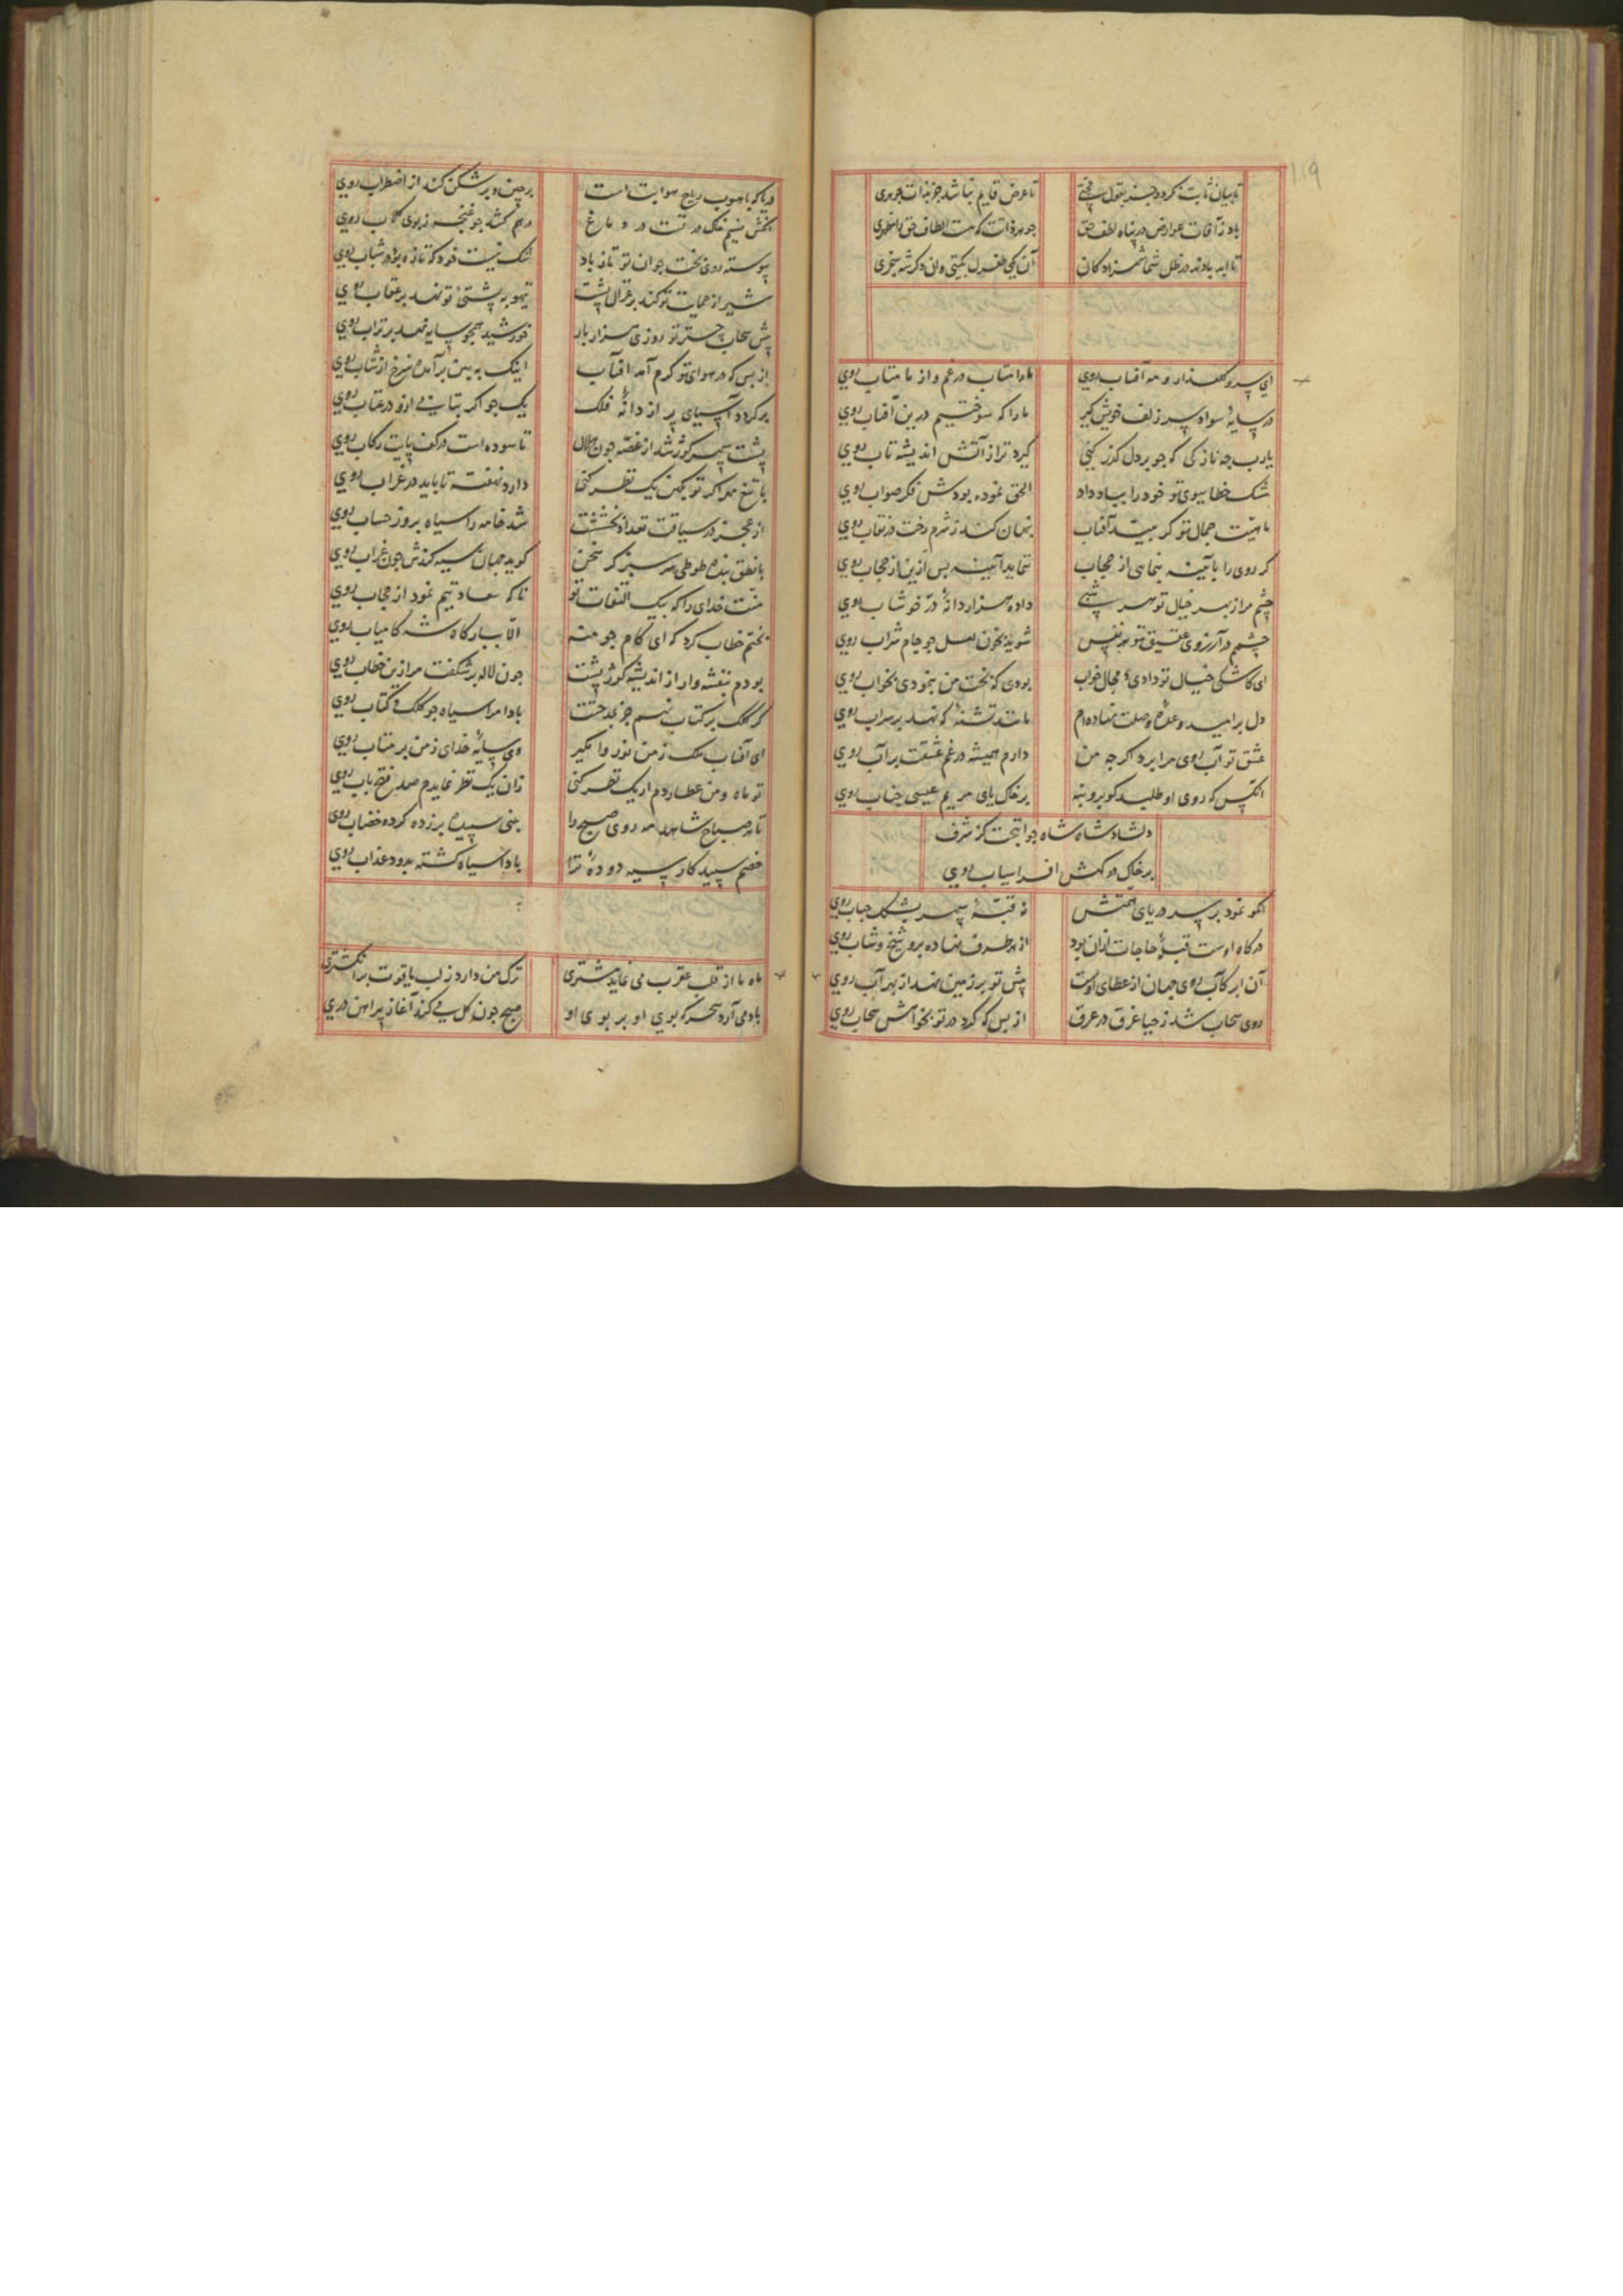 ۱۱۹
تا بیان ثابت نکردد جز بقول
تا عرض قایم نباشد جز بذات جوهری
باد ز آفات عوارض در پناه لطف حق
جوهر ذاتت که هست الطاف حق را مظهری
تا ابد بادند در ظل شما شهزادکان
آن یکی طغرل تمکین وان دکر شه سنجری
ای سرو کلعذار و مه آفتاب روی
ما را متاب در غم و از ما متاب روی
در سایهٔ سواد سر زلف خویش کیر
ما را که سوختیم درین آفتاب روی
یارب چه نازکی که جو بر دل کذر کنی
کیرد ترا ز آتش اندیشه تاب روی
مشک خطا ببوی تو خود را بباد داد
الحق نموده بودش فکر صواب روی
ماهیت جمال تو کر بیند آفتاب
پنهان کند ز شرم رخت در نقاب روی
کر روی را بآینه بنمایی از حجاب
ننماید آینه پس ازین از حجاب روی
چشم مرا ز بهر خیال تو هر شبی
داده هزار دانهٔ در خوشاب روی
چشمم در آرزوی عقیق تو هر نفس
شوید بخون لعل جو جام شراب روی
ای کاشکی خیال تو دادی مجال خواب
بودی که بخت من بنمودی بخواب روی
دل بر امید وعدهٔ وصلت نهاده‌ام
مانند تشنهٔ که نهد بر سراب روی
عشق تو آب روی مرا برد اکرچه من
دارم همیشه در غم عشقت بر آب روی
آنکس که روی او طلبد کو برو بنه
بر خاک پای مریم عیسی جناب روی
دلشاد شاه شاه جوانبخت کز شرف
بر خاک درکهش افراسیاب روی
آنکو نمود بر سر دریای همتش
نه قبهٔ سپهر بشکل حباب روی
درکاه اوست قبلهٔ حاجات ازان برد
از هر طرف نهاده برو شیخ و شاب روی
آن ابر کآب روی جهان از عطای اوست
پیش تو بر زمین نهد از بهر آب روی
روی سحاب شد ز حیا غرق در عرق
از بس که کرد در تو بخواهش سحاب روی
دریا که با هبوب ریاح مهابتت است
بر چین و پر شکن کند از اضطراب روی
در هم کشد جو غنچه ز بوی کلاب روی
پیوسته روی بخت جوان تو تازه باد
شک نیست خود که تازه بود در شباب روی
شیر از حمایت تو کند بر غزال پشت
تیهو به پشتی تو نهد بر عقاب روی
پیش سحاب چتر تو روزی هزار بار
خورشید همچو سایه نهد بر تراب روی
از بس که در هوای تو کرم آمد آفتاب
اینک به بین بر آمده سرخ از شتاب روی
بر کردد آسیای پر از دانهٔ فلک
یک جو اکر بتابی ازو در عتاب روی
پشت سپهر کوژ شد از غصه جون هلال
تا سوده است در کف پایت رکاب روی
دارد نهفته تا باید در غراب روی
از عجز در سیاقت تعداد بخششت
شد خامه را سیاه بروز حساب روی
با نطق بنده طوطی سرسبز کر سخن
کوید جهان سیه کندش جون غراب روی
منت خدای را که بیک التفات تو
ناکه سعادتیم نمود از حجاب روی
بختم خطاب کرد که ای کام جو منه
الا ببارکاه شه کامیاب روی
بودم بنفشه وار از اندیشه کوژ پشت
جون لاله بر شکفت مرا زین خطاب روی
کر کلک بر کتاب نهم جز بمدحتت
بادا مرا سیاه جو کلک و کتاب روی
ای آفتاب ملک ز من نور وا مکیر
وی سایهٔ خدای ز من بر متاب روی
تو ماه و من عطاردم ار یک نظر کنی
زان یک نظر نمایدم صد فتح باب روی
تا هر صباح شاهد مه روی صبح را
بینی سپیده بر زده کرده خضاب روی
خصم سپید کار سیه دودهٔ ترا
بادا سیاه کشته بدود عذاب روی
ماه ما از قلب عقرب می نماید مشتری
ترک من دارد ز لب یاقوت بر انکشتری
باد می آرد سحر که بوی او بر بوی او
صبح جون کل می کند آغاز پیراهن دری